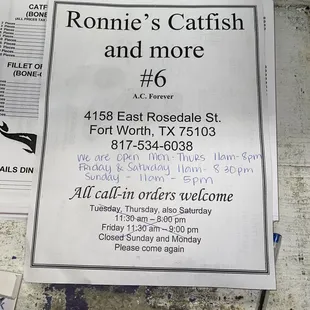 CATF
(BONE-
(ALL PRICES TAX
FILLET OF
(BONE-
AILS DIN
Ronnie's Catfish
and more
#6
A.C. Forever
4158 East Rosedale St.
Fort Worth, TX 75103
817-534-6038
We are open Mon-Thurs 11am-8pm
Friday & Saturday 11am- 8:30pm
Sunday - 11am - 5pm
All call-in orders welcome
Tuesday, Thursday, also Saturday
11:30 am – 8:00 pm
Friday 11:30 am – 9:00 pm
Closed Sunday and Monday
Please come again